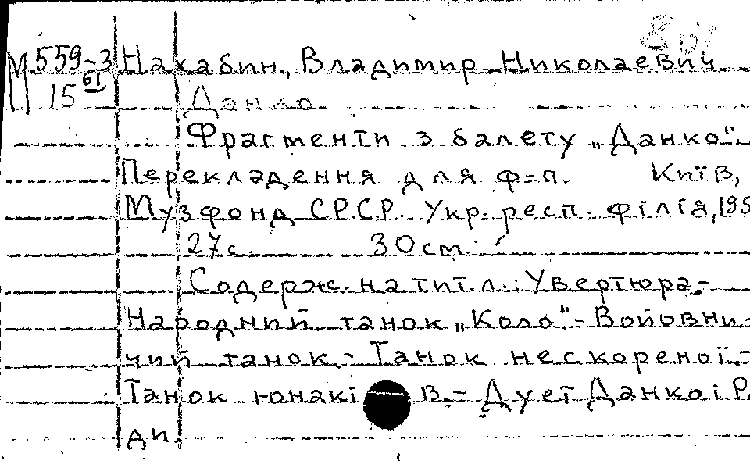 М 559-3 Нахабин, Владимир Николаевич
15 61 Данко
Фрагменти з балету „Данко“.
Перекладення для ф-п. Київ,
Музфонд СРСР. Укр. респ. філія, 195
27с. 30см.
Содерж. на тит. л.: Увертюра.-
Народний танок „Коло“.- Войовни-
чий танок.- Танок нескореної.-
Танок юнакі в.- Дует Данко і Р
ди.